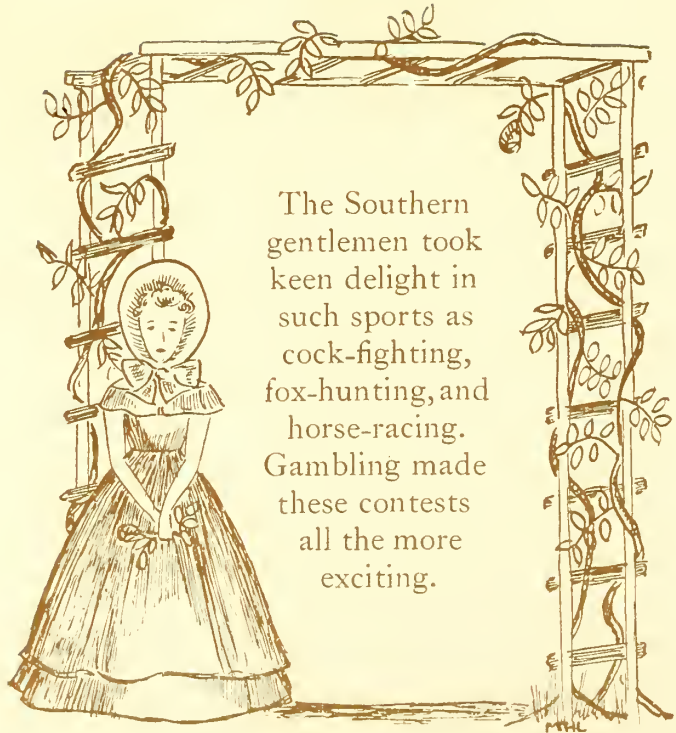 The Southern
gentlemen took
keen delight in
such sports as
cock-fighting,
fox-hunting, and
horse-racing.
Gambling made
these contests
all the more
exciting.